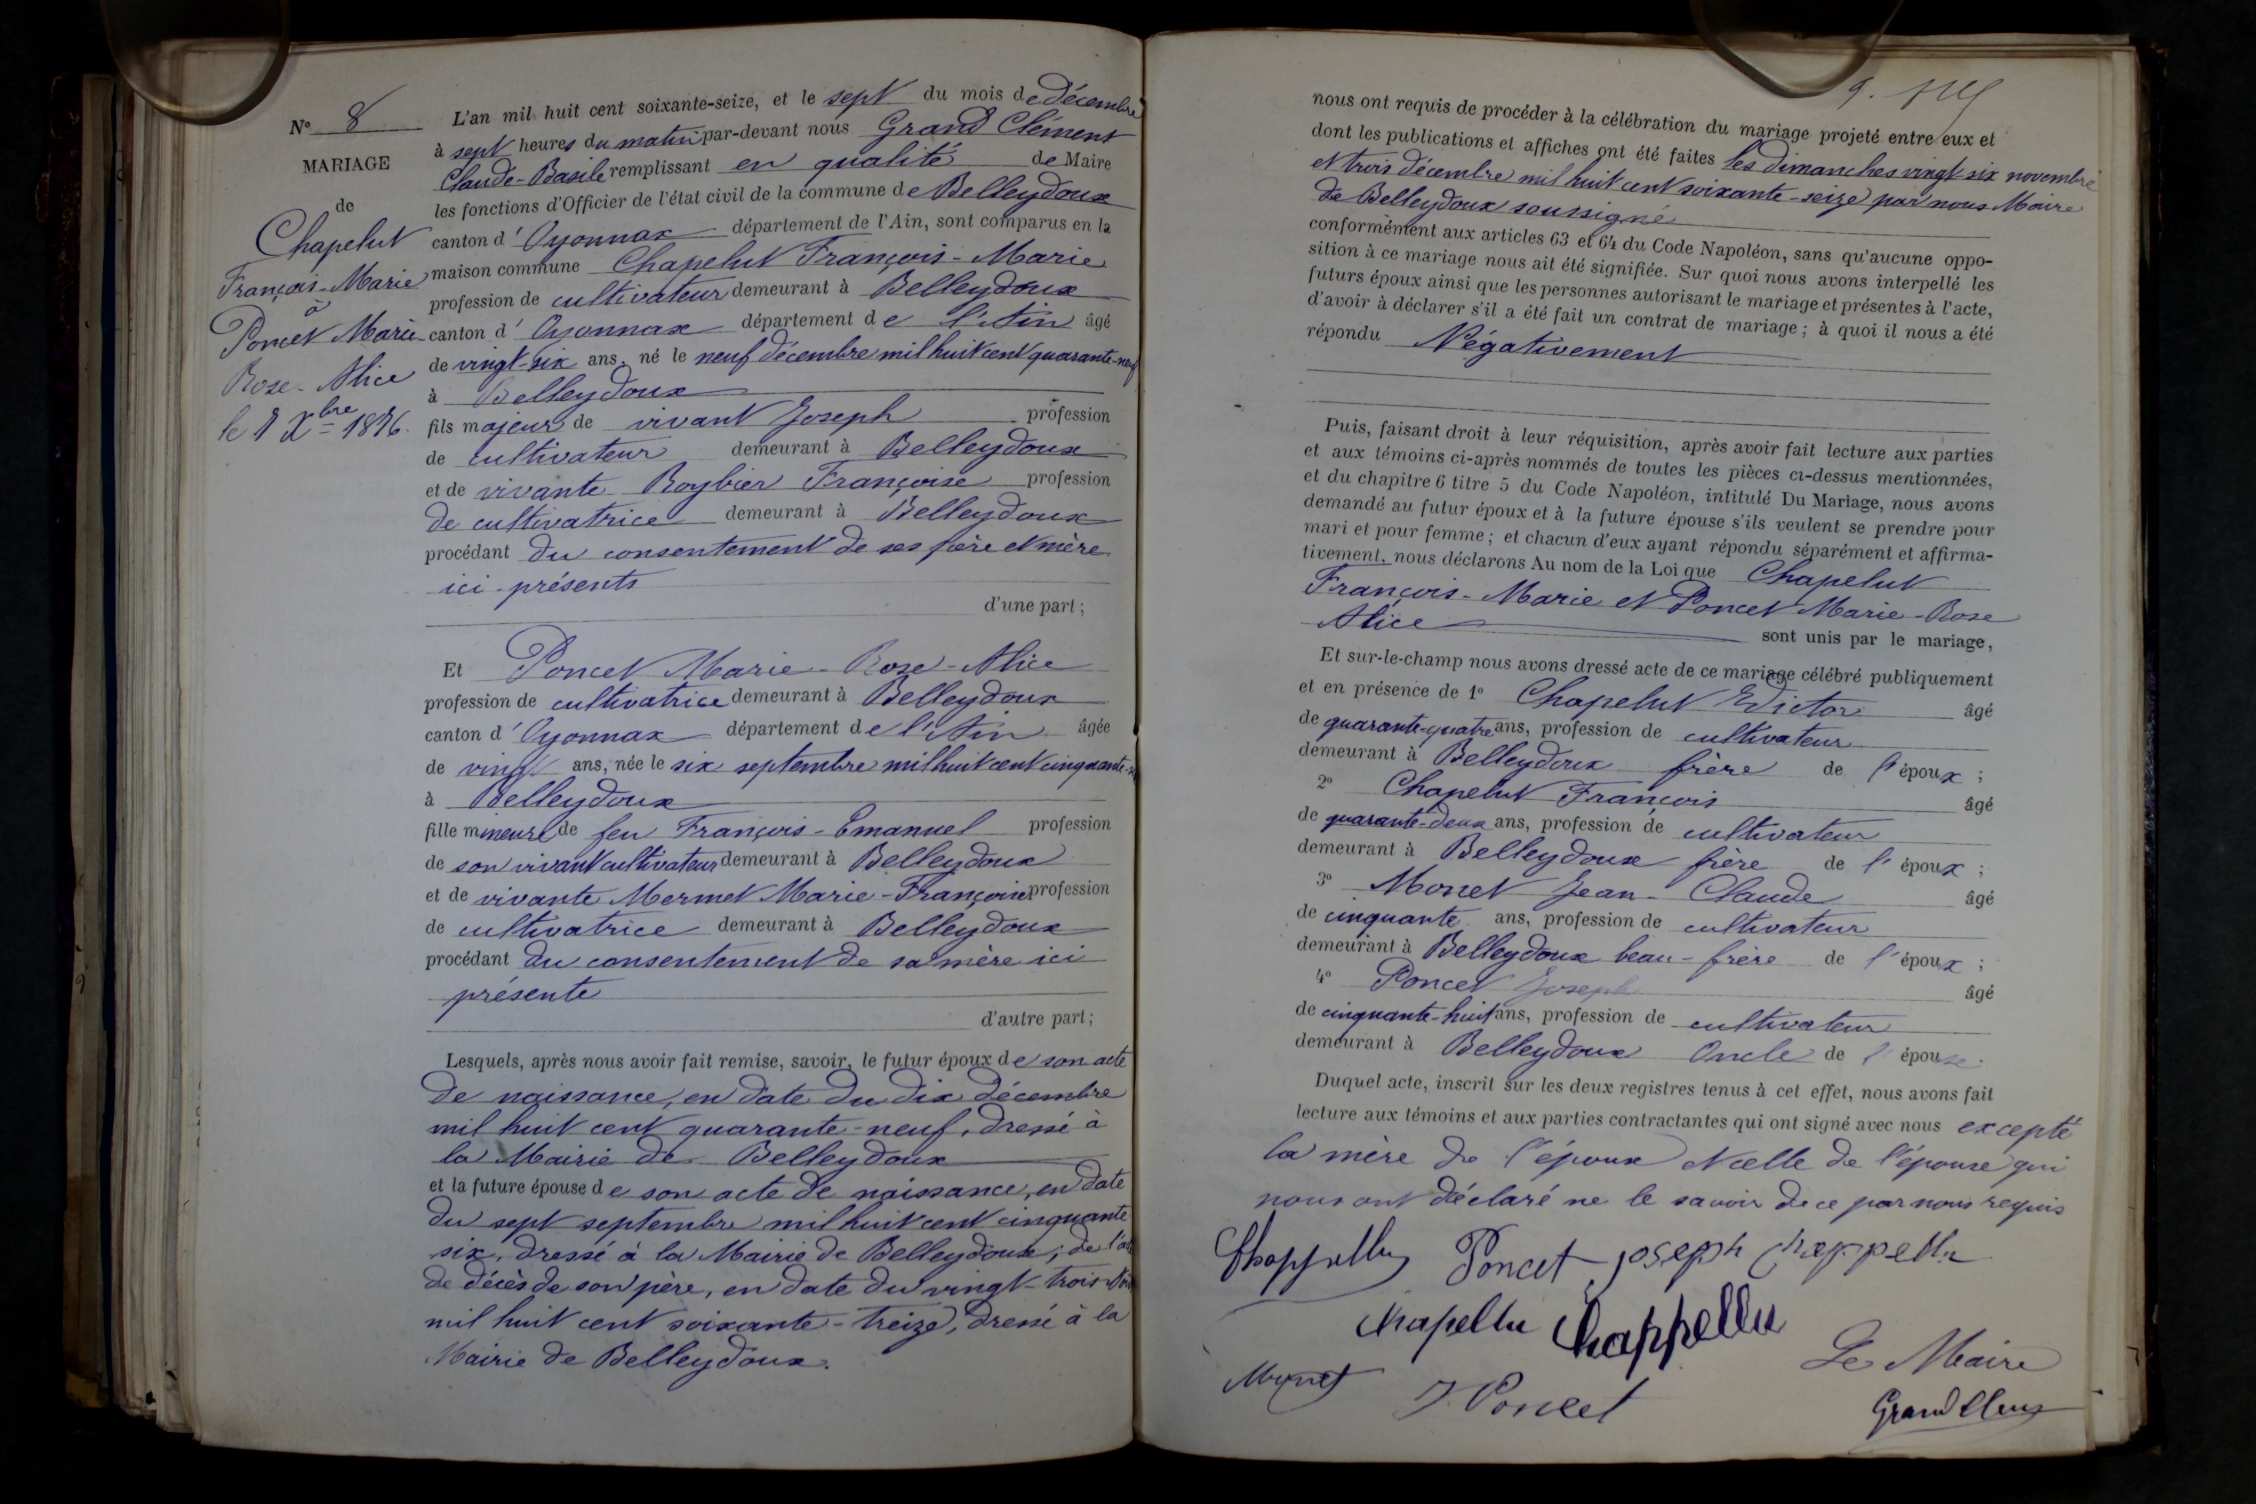 N° 8
MARIAGE
de
Chapelut
François-Marie
à
Poncet Marie
Rose-Alice
le 7 Xbre 1876.
L'an mil huit cent soixante-seize, et le sept du mois de décembre
à sept heures du matin par-devant nous Grand Clément
Claude-Basile remplissant en qualité de Maire
les fonctions d'Officier de l'état civil de la commune de Belleydoux
canton d'Oyonnax département de l'Ain, sont comparus en la
maison commune Chapelut François-Marie
profession de cultivateur demeurant à Belleydoux
canton d'Oyonnax département de l'Ain âgé
de vingt-six ans, né le neuf décembre mil huit cent quarante-neuf
à Belleydoux
fils majeur de vivant Joseph profession
de cultivateur demeurant à Belleydoux
et de vivante Roybier Françoise profession
de cultivatrice demeurant à Belleydoux
procédant du consentement de ses père et mère
ici présents
d'une part;
Et Poncet Marie-Rose-Alice
profession de cultivatrice demeurant à Belleydoux
canton d'Oyonnax département de l'Ain âgée
de vingt ans, née le six septembre mil huit cent cinquante-
à Belleydoux
fille mineure de feu François-Emanuel profession
de son vivant cultivateur demeurant à Belleydoux
et de vivante Mermet Marie-Françoise profession
de cultivatrice demeurant à Belleydoux
procédant du consentement de sa mère ici
présente
d'autre part;
Lesquels, après nous avoir fait remise, savoir, le futur époux de son acte
de naissance, en date du dix décembre
mil huit cent quarante-neuf, dressé à
la Mairie de Belleydoux
et la future épouse de son acte de naissance, en date
du sept septembre mil huit cent cinquante
six, dressé à la Mairie de Belleydoux; de
de décès de son père, en date du vingt-trois
mil huit cent soixante-treize, dressé à la
Mairie de Belleydoux.
nous ont requis de procéder à la célébration du mariage projeté entre eux et
dont les publications et affiches ont été faites les dimanches vingt six novembre
et trois décembre mil huit cent soixante-seize par nous Maire
de Belleydoux soussigné
conformément aux articles 63 et 64 du Code Napoléon, sans qu'aucune oppo-
sition à ce mariage nous ait été signifiée. Sur quoi nous avons interpellé les
futurs époux ainsi que les personnes autorisant le mariage et présentes à l'acte,
d'avoir à déclarer s'il a été fait un contrat de mariage; à quoi il nous a été
répondu Négativement
Puis, faisant droit à leur réquisition, après avoir fait lecture aux parties
et aux témoins ci-après nommés de toutes les pièces ci-dessus mentionnées,
et du chapitre 6 titre 5 du Code Napoléon, intitulé Du Mariage, nous avons
demandé au futur époux et à la future épouse s'ils veulent se prendre pour
mari et pour femme; et chacun d'eux ayant répondu séparément et affirma-
tivement, nous déclarons Au nom de la Loi que Chapelut
François-Marie et Poncet Marie-Rose
Alice sont unis par le mariage,
Et sur-le-champ nous avons dressé acte de ce mariage célébré publiquement
et en présence de 1° Chapelut Victor âgé
de quarante-quatre ans, profession de cultivateur
demeurant à Belleydoux frère de l'époux;
2° Chapelut François âgé
de quarante-deux ans, profession de cultivateur
demeurant à Belleydoux frère de l'époux;
3° Monet Jean-Claude âgé
de cinquante ans, profession de cultivateur
demeurant à Belleydoux beau-frère de l'époux;
4° Poncet Joseph âgé
de cinquante-huit ans, profession de cultivateur
demeurant à Belleydoux Oncle de l'épouse.
Duquel acte, inscrit sur les deux registres tenus à cet effet, nous avons fait
lecture aux témoins et aux parties contractantes qui ont signé avec nous excepté
la mère de l'époux et celle de l'épouse qui
nous ont déclaré ne le savoir de ce par nous requis
Chappellu Poncet joseph chappellu
chapellu Chappellu
Monet J. Poncet
Le Maire
Grand Clem